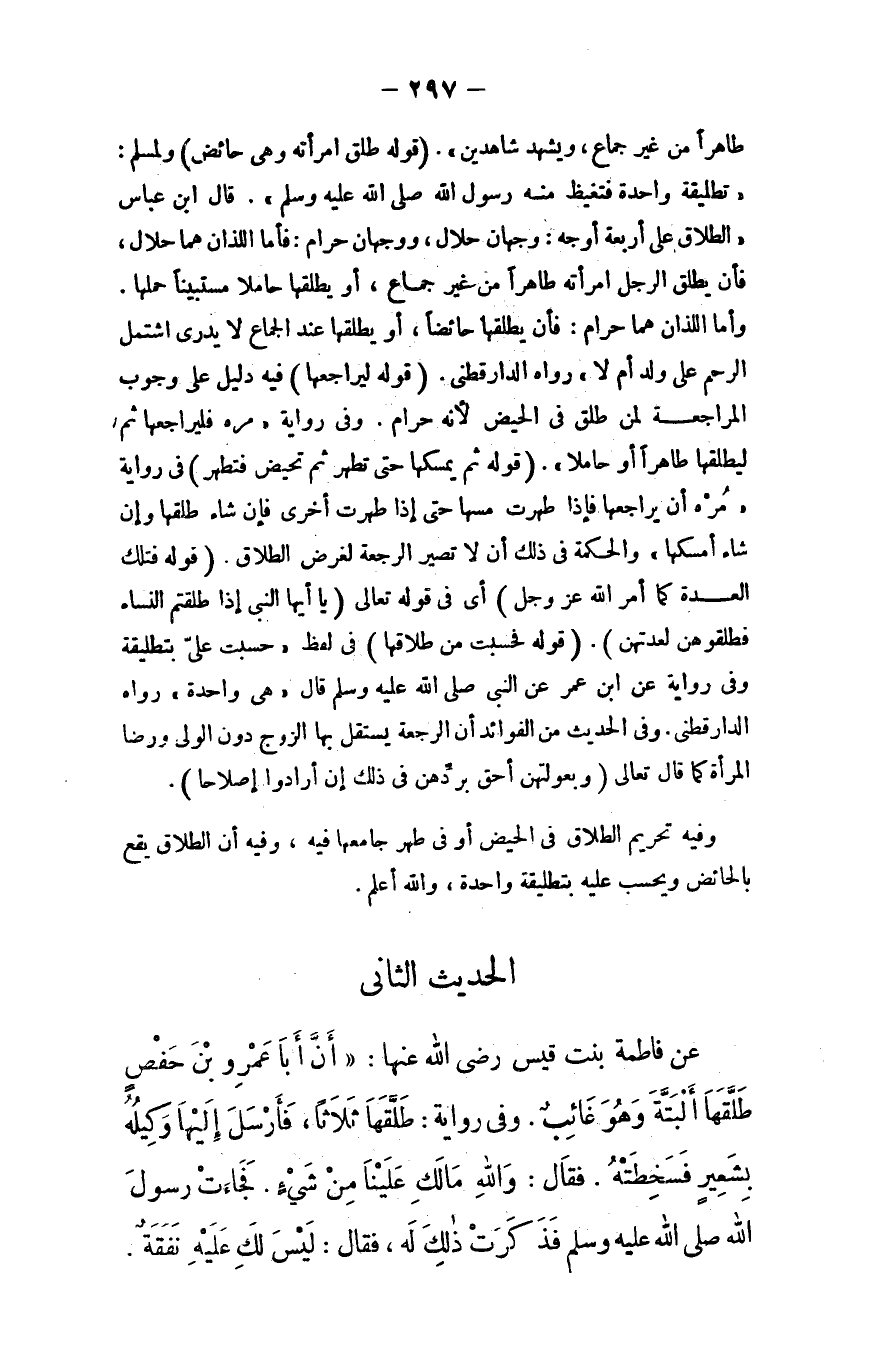 – ٢٩٧ –
طاهراً من غير جماع، ويشهد شاهدين». (قوله طلق امرأته وهى حائض) ولمسلم:
«تطليقة واحدة فتغيظ منه رسول الله صلى الله عليه وسلم». قال ابن عباس
«الطلاق على أربعة أوجه: وجهان حلال، ووجهان حرام: فأما اللذان هما حلال،
فأن يطلق الرجل امرأته طاهراً من غير جماع، أو يطلقها حاملا مستبيناً حملها.
وأما اللذان هما حرام: فأن يطلقها حائضاً، أو يطلقها عند الجماع لا يدرى اشتمل
الرحم على ولد أم لا» رواه الدارقطنى. (قوله ليراجعها) فيه دليل على وجوب
المراجعــة لمن طلق فى الحيض لأنه حرام. وفى رواية «مره فليراجعها ثم
ليطلقها طاهراً أو حاملا». (قوله ثم يمسكها حتى تطهر ثم تحيض فتطهر) فى رواية
«مُرْه أن يراجعها فإذا طهرت مسها حتى إذا طهرت أخرى فإن شاء طلقها وإن
شاء أمسكها» والحكمة فى ذلك أن لا تصير الرجعة لغرض الطلاق. (قوله فتلك
العــدة كما أمر الله عز وجل) أى فى قوله تعالى (يا أيها النبي إذا طلقتم النساء
فطلقوهن لعدتهن). (قوله فحسبت من طلاقها) فى لفظ «حسبت علىّ بتطليقة
وفى رواية عن ابن عمر عن النبي صلى الله عليه وسلم قال «هى واحدة» رواه
الدارقطنى. وفى الحديث من الفوائد أن الرجعة يستقل بها الزوج دون الولى ورضا
المرأة كما قال تعالى (وبعولتهن أحق بردّهن فى ذلك إن أرادوا إصلاحا).
وفيه تحريم الطلاق فى الحيض أو فى طهر جامعها فيه، وفيه أن الطلاق يقع
بالحائض ويحسب عليه بتطليقة واحدة، والله أعلم.
الحديث الثانى
عن فاطمة بنت قيس رضى الله عنها: «أَنَّ أَبَا عَمْرِو بْنَ حَفْصٍ
طَلَّقَهَا أَلْبَتَّةَ وَهُوَ غَائِبٌ. وفى رواية: طَلَّقَهَا ثَلَاثًا، فَأَرْسَلَ إِلَيْهَا وَكِيلُهُ
بِشَعِيرٍ فَسَخِطَتْهُ. فقال: وَاللهِ مَالَكِ عَلَيْنَا مِنْ شَيْءٍ. فَجَاءَتْ رسولَ
الله صلى الله عليه وسلم فَذَكَرَتْ ذٰلِكَ لَه، فقال: لَيْسَ لَكِ عَلَيْهِ نَفَقَةٌ.